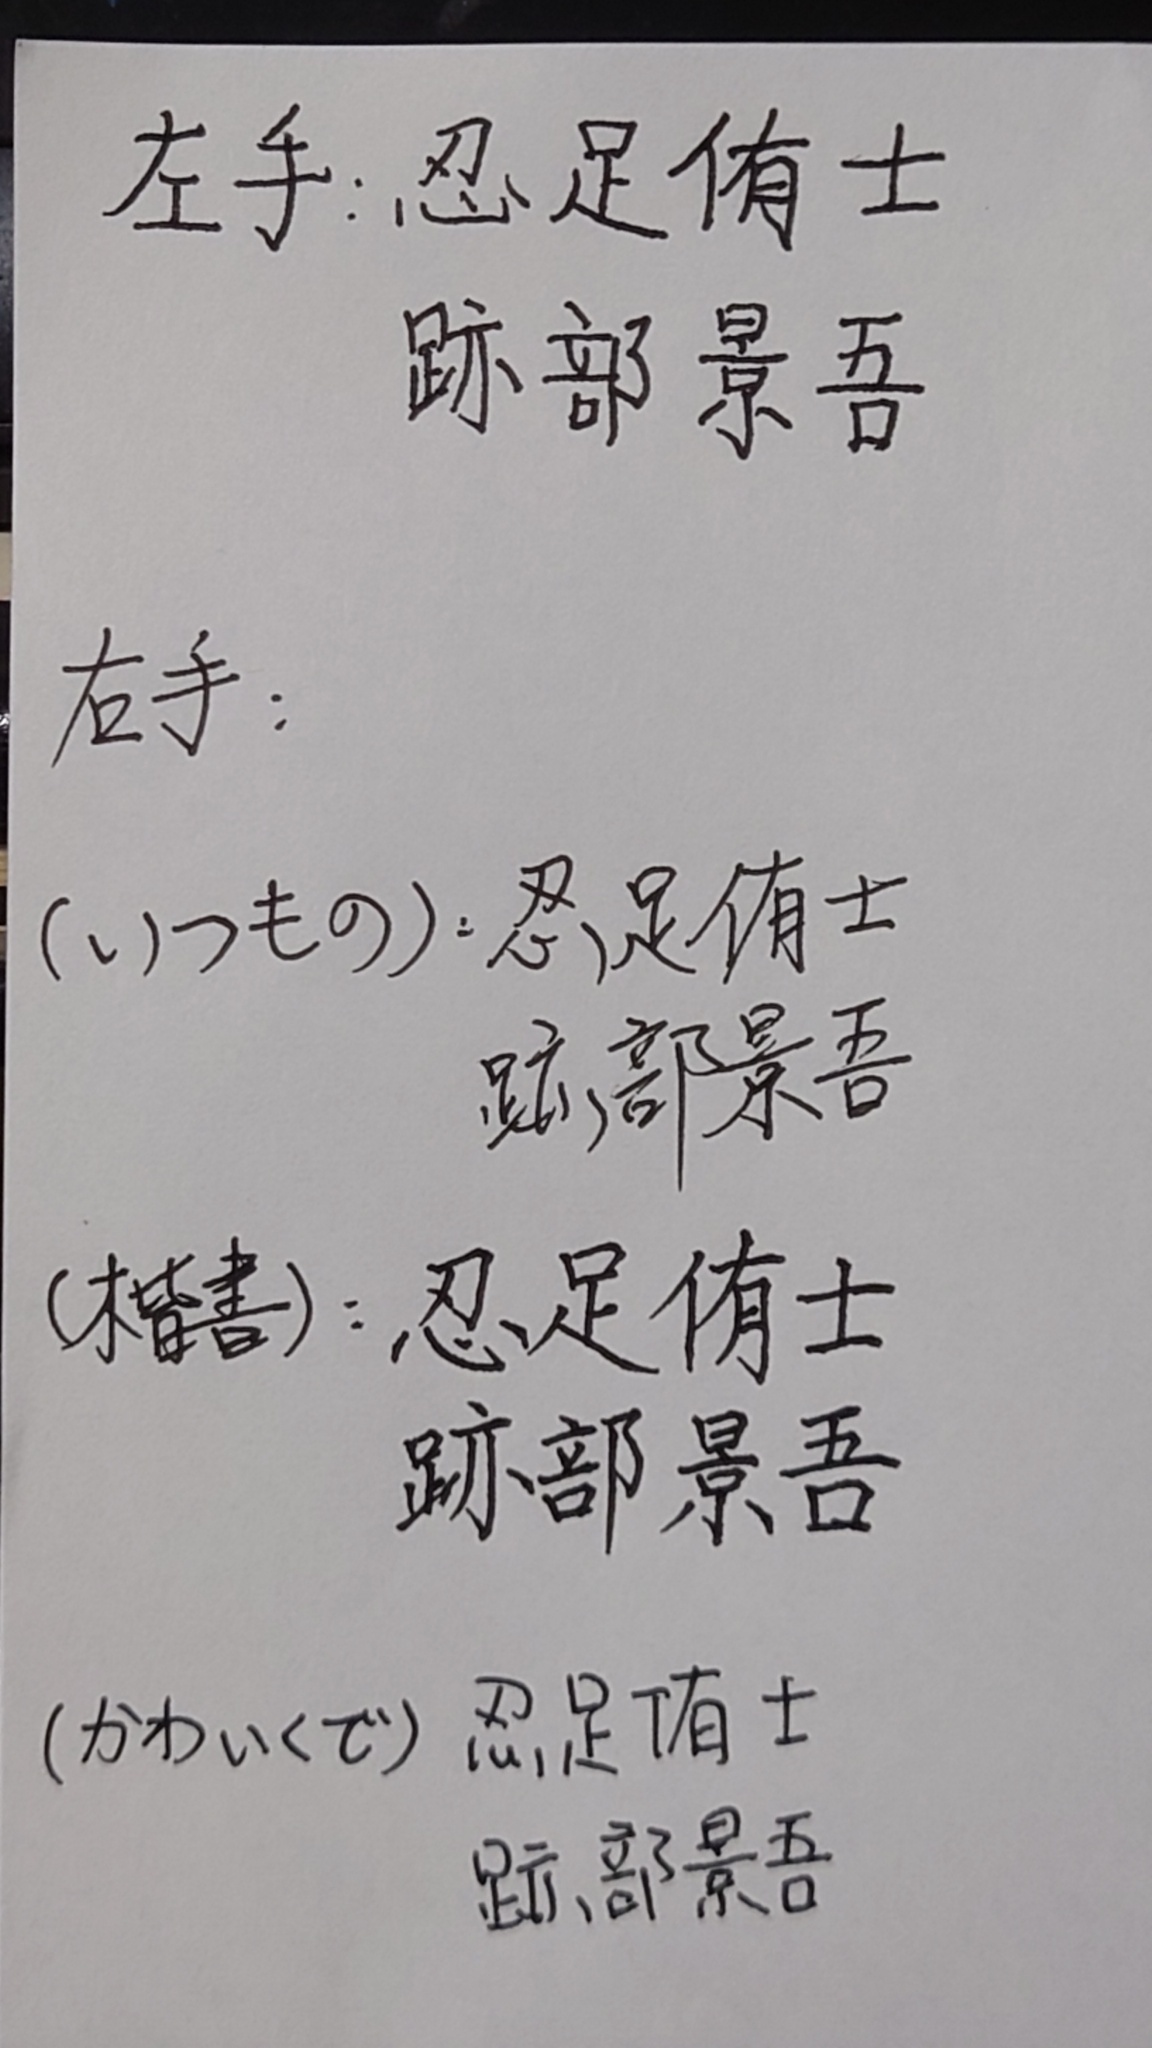 左手:忍足侑士
跡部景吾
右手:
(いつもの):忍足侑士
跡部景吾
(楷書):忍足侑士
跡部景吾
(かわいくで)忍足侑士
跡部景吾